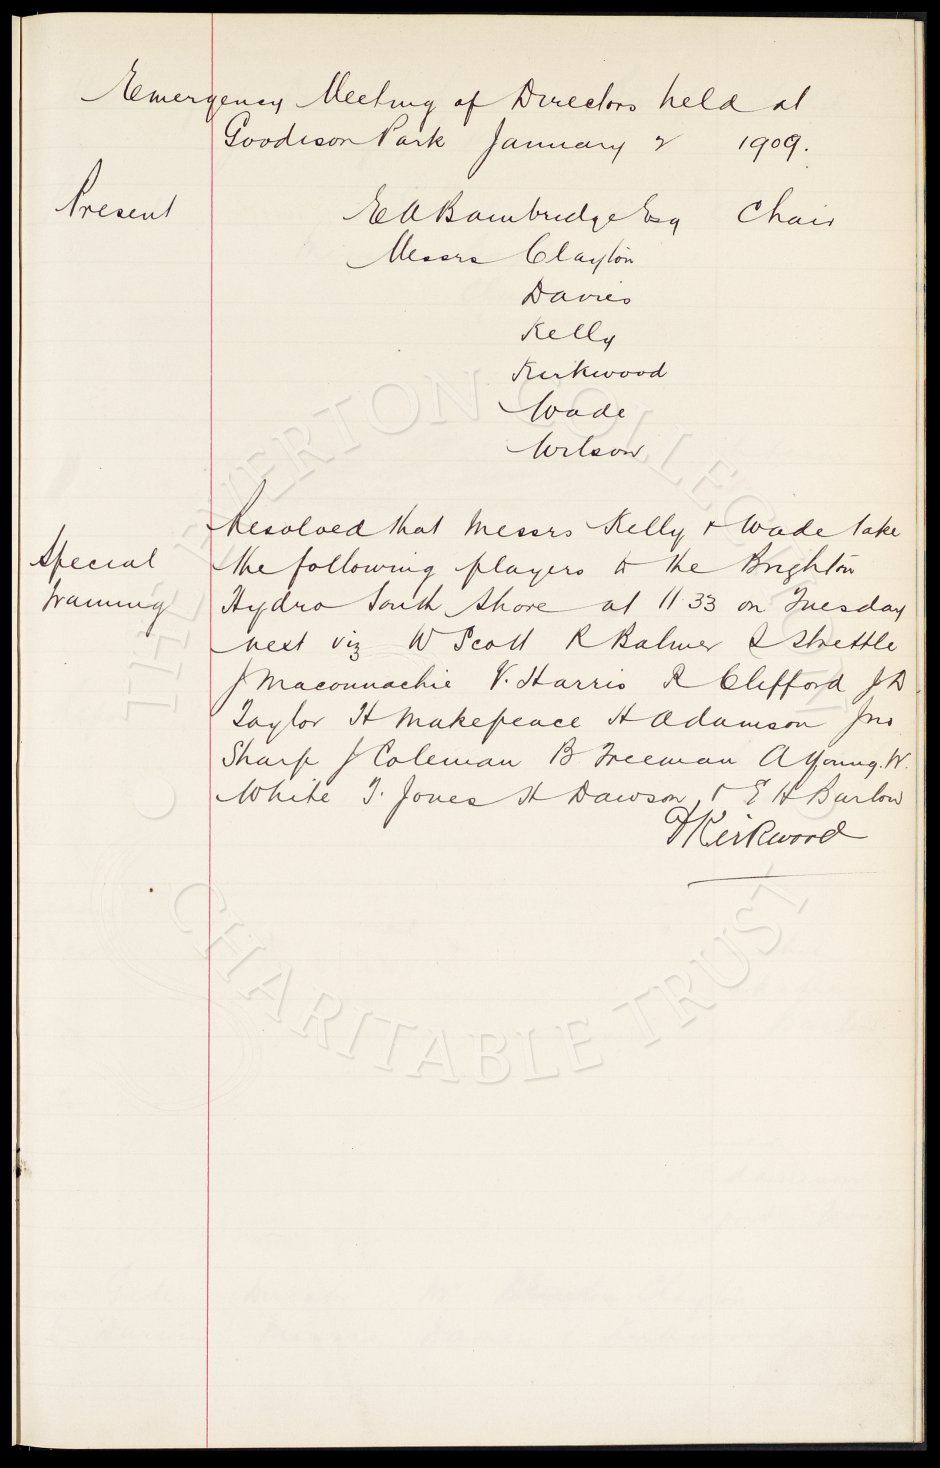 Emergency Meeting of Directors held at
Goodison Park January 2 1909.
Present E A Bainbridge Esq Chair
Messrs Clayton
Davies
Kelly
Kirkwood
Wade
Wilson
Resolved that Messrs Kelly & Wade take
Special the following players to the Brighton
training Hydro South Shore at 11.33 on Tuesday
next viz W Scott R Balmer S Strettle
J Maconnachie V. Harris R Clifford J D
Taylor H Makepeace H Adamson Jno
Sharp J Coleman B Freeman A Young. W.
White T. Jones H Dawson, & E H Barlow
D Kirkwood
© THE EVERTON COLLECTION
CHARITABLE TRUST